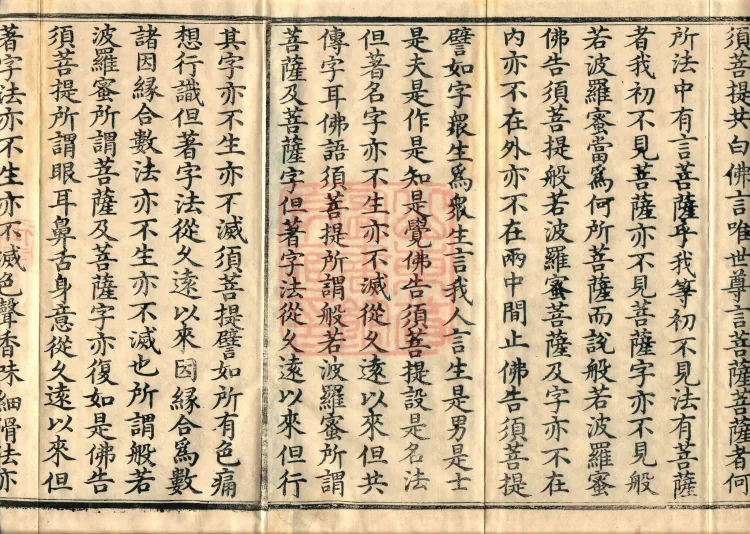 須菩提共白佛言唯世尊言菩薩菩薩者何
所法中有言菩薩乎我等初不見法有菩薩
者我初不見菩薩亦不見菩薩字亦不見般
若波羅蜜當爲何所菩薩而說般若波羅蜜
佛告須菩提般若波羅蜜菩薩及字亦不在
內亦不在外亦不在兩中間止佛告須菩提
譬如字衆生爲衆生言我人言生是男是士
是夫是作是知是覺佛告須菩提設是名法
但著名字亦不生亦不滅從久遠以來但共
傳字耳佛語須菩提所謂般若波羅蜜所謂
菩薩及菩薩字但著字法從久遠以來但行
其字亦不生亦不滅須菩提譬如所有色痛
想行識但著字法從久遠以來因緣合爲數
諸因緣合數法亦不生亦不滅也所謂般若
波羅蜜所謂菩薩及菩薩字亦復如是佛告
須菩提所謂眼耳鼻舌身意從久遠以來但
著字法亦不生亦不滅色聲香味細滑法亦